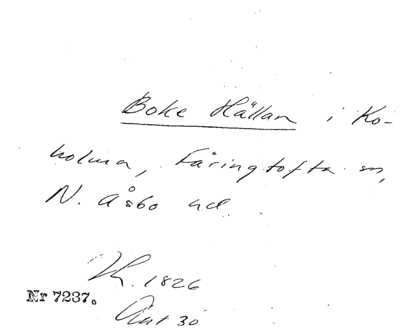 Boke Hällan i Ko-
holma, Färingtofta sn,
N. Åsbo hd.
1826
Nr 7237.
30